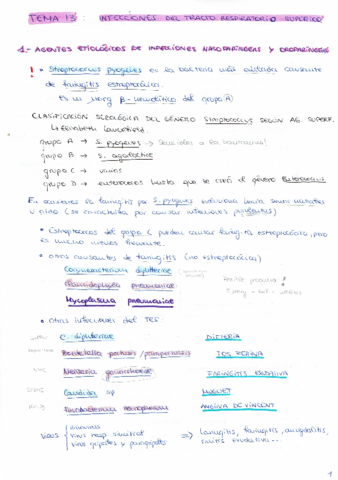 TEMA 13: INFECCIONES DEL TRACTO RESPIRATORIO SUPERIOR
1.- AGENTES ETIOLÓGICOS DE INFECCIONES NASOFARÍNGEAS Y OROFARÍNGEAS
! • Streptococcus pyogenes es la bacteria más aislada causante
de faringitis estreptocócica.
Es un microg β-hemolítico del grupo A
CLASIFICACIÓN SEROLÓGICA DEL GÉNERO Streptococcus SEGÚN AG. SUPERF.
grupo A → S. pyogenes →
grupo B → S. agalactiae
grupo C → varios
grupo D → enterococos hasta que se creó el género Enterococcus
En ocasiones la faringitis por S. pyogenes
y otitis (se caracteriza por causar infecciones piógenas)
• Estreptococos del grupo C pueden causar faringitis estreptocócica, pero
es mucho menos frecuente.
• Otros causantes de faringitis (no estreptocócica)
Corynebacterium diphtheriae
Chlamidophyla pneumoniae
Mycoplasma pneumoniae
• Otras infecciones del TRS:
C. diphtheriae DIFTERIA
Bordetella pertussis / parapertussis TOS FERINA
Neisseria gonorrhoeae FARINGITIS EXUDATIVA
Candida sp MUGUET
Fusobacterium ANGINA DE VINCENT
Virus { rinovirus
virus resp. sincitial
virus gripales y paragripales } => laringitis, faringitis, amigdalitis,
1